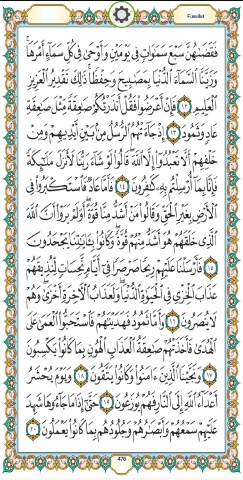 Fussilat
فَقَضَىٰهُنَّ سَبْعَ سَمَٰوَاتٍ فِى يَوْمَيْنِ وَأَوْحَىٰ فِى كُلِّ سَمَآءٍ أَمْرَهَا
وَزَيَّنَّا ٱلسَّمَآءَ ٱلدُّنْيَا بِمَصَٰبِيحَ وَحِفْظًا ذَٰلِكَ تَقْدِيرُ ٱلْعَزِيزِ
ٱلْعَلِيمِ ١٢ فَإِنْ أَعْرَضُوا۟ فَقُلْ أَنذَرْتُكُمْ صَٰعِقَةً مِّثْلَ صَٰعِقَةِ
عَادٍ وَثَمُودَ ١٣ إِذْ جَآءَتْهُمُ ٱلرُّسُلُ مِنۢ بَيْنِ أَيْدِيهِمْ وَمِنْ
خَلْفِهِمْ أَلَّا تَعْبُدُوٓا۟ إِلَّا ٱللَّهَ قَالُوا۟ لَوْ شَآءَ رَبُّنَا لَأَنزَلَ مَلَٰٓئِكَةً
فَإِنَّا بِمَآ أُرْسِلْتُم بِهِۦ كَٰفِرُونَ ١٤ فَأَمَّا عَادٌ فَٱسْتَكْبَرُوا۟ فِى
ٱلْأَرْضِ بِغَيْرِ ٱلْحَقِّ وَقَالُوا۟ مَنْ أَشَدُّ مِنَّا قُوَّةً أَوَلَمْ يَرَوْا۟ أَنَّ ٱللَّهَ
ٱلَّذِى خَلَقَهُمْ هُوَ أَشَدُّ مِنْهُمْ قُوَّةً وَكَانُوا۟ بِـَٔايَٰتِنَا يَجْحَدُونَ
١٥ فَأَرْسَلْنَا عَلَيْهِمْ رِيحًا صَرْصَرًا فِىٓ أَيَّامٍ نَّحِسَاتٍ لِّنُذِيقَهُمْ
عَذَابَ ٱلْخِزْىِ فِى ٱلْحَيَوٰةِ ٱلدُّنْيَا وَلَعَذَابُ ٱلْءَاخِرَةِ أَخْزَىٰ وَهُمْ
لَا يُنصَرُونَ ١٦ وَأَمَّا ثَمُودُ فَهَدَيْنَٰهُمْ فَٱسْتَحَبُّوا۟ ٱلْعَمَىٰ عَلَى
ٱلْهُدَىٰ فَأَخَذَتْهُمْ صَٰعِقَةُ ٱلْعَذَابِ ٱلْهُونِ بِمَا كَانُوا۟ يَكْسِبُونَ
١٧ وَنَجَّيْنَا ٱلَّذِينَ ءَامَنُوا۟ وَكَانُوا۟ يَتَّقُونَ ١٨ وَيَوْمَ يُحْشَرُ
أَعْدَآءُ ٱللَّهِ إِلَى ٱلنَّارِ فَهُمْ يُوزَعُونَ ١٩ حَتَّىٰٓ إِذَا مَا جَآءُوهَا شَهِدَ
عَلَيْهِمْ سَمْعُهُمْ وَأَبْصَٰرُهُمْ وَجُلُودُهُم بِمَا كَانُوا۟ يَعْمَلُونَ ٢٠
478